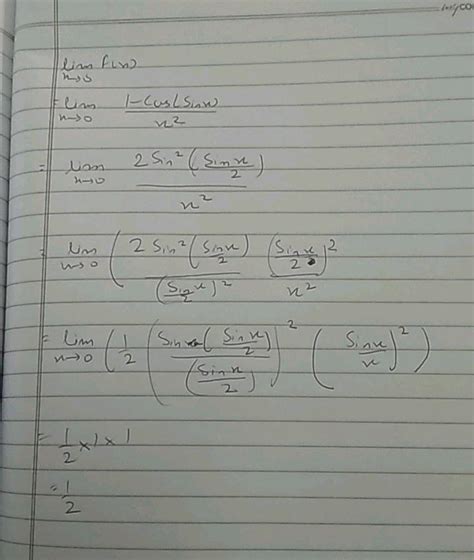 lim f(x)
x→0
= lim 1-cos(sinx)/x²
x→0
= lim 2sin²(sinx/2)/x²
x→0
= lim (2sin²(sinx/2)/(sinx/2)² (sinx/2)²/x²
x→0
= lim (1/2 (sin(sinx/2)/(sinx/2))² (sinx/x)²)
x→0
= 1/2 × 1 × 1
= 1/2